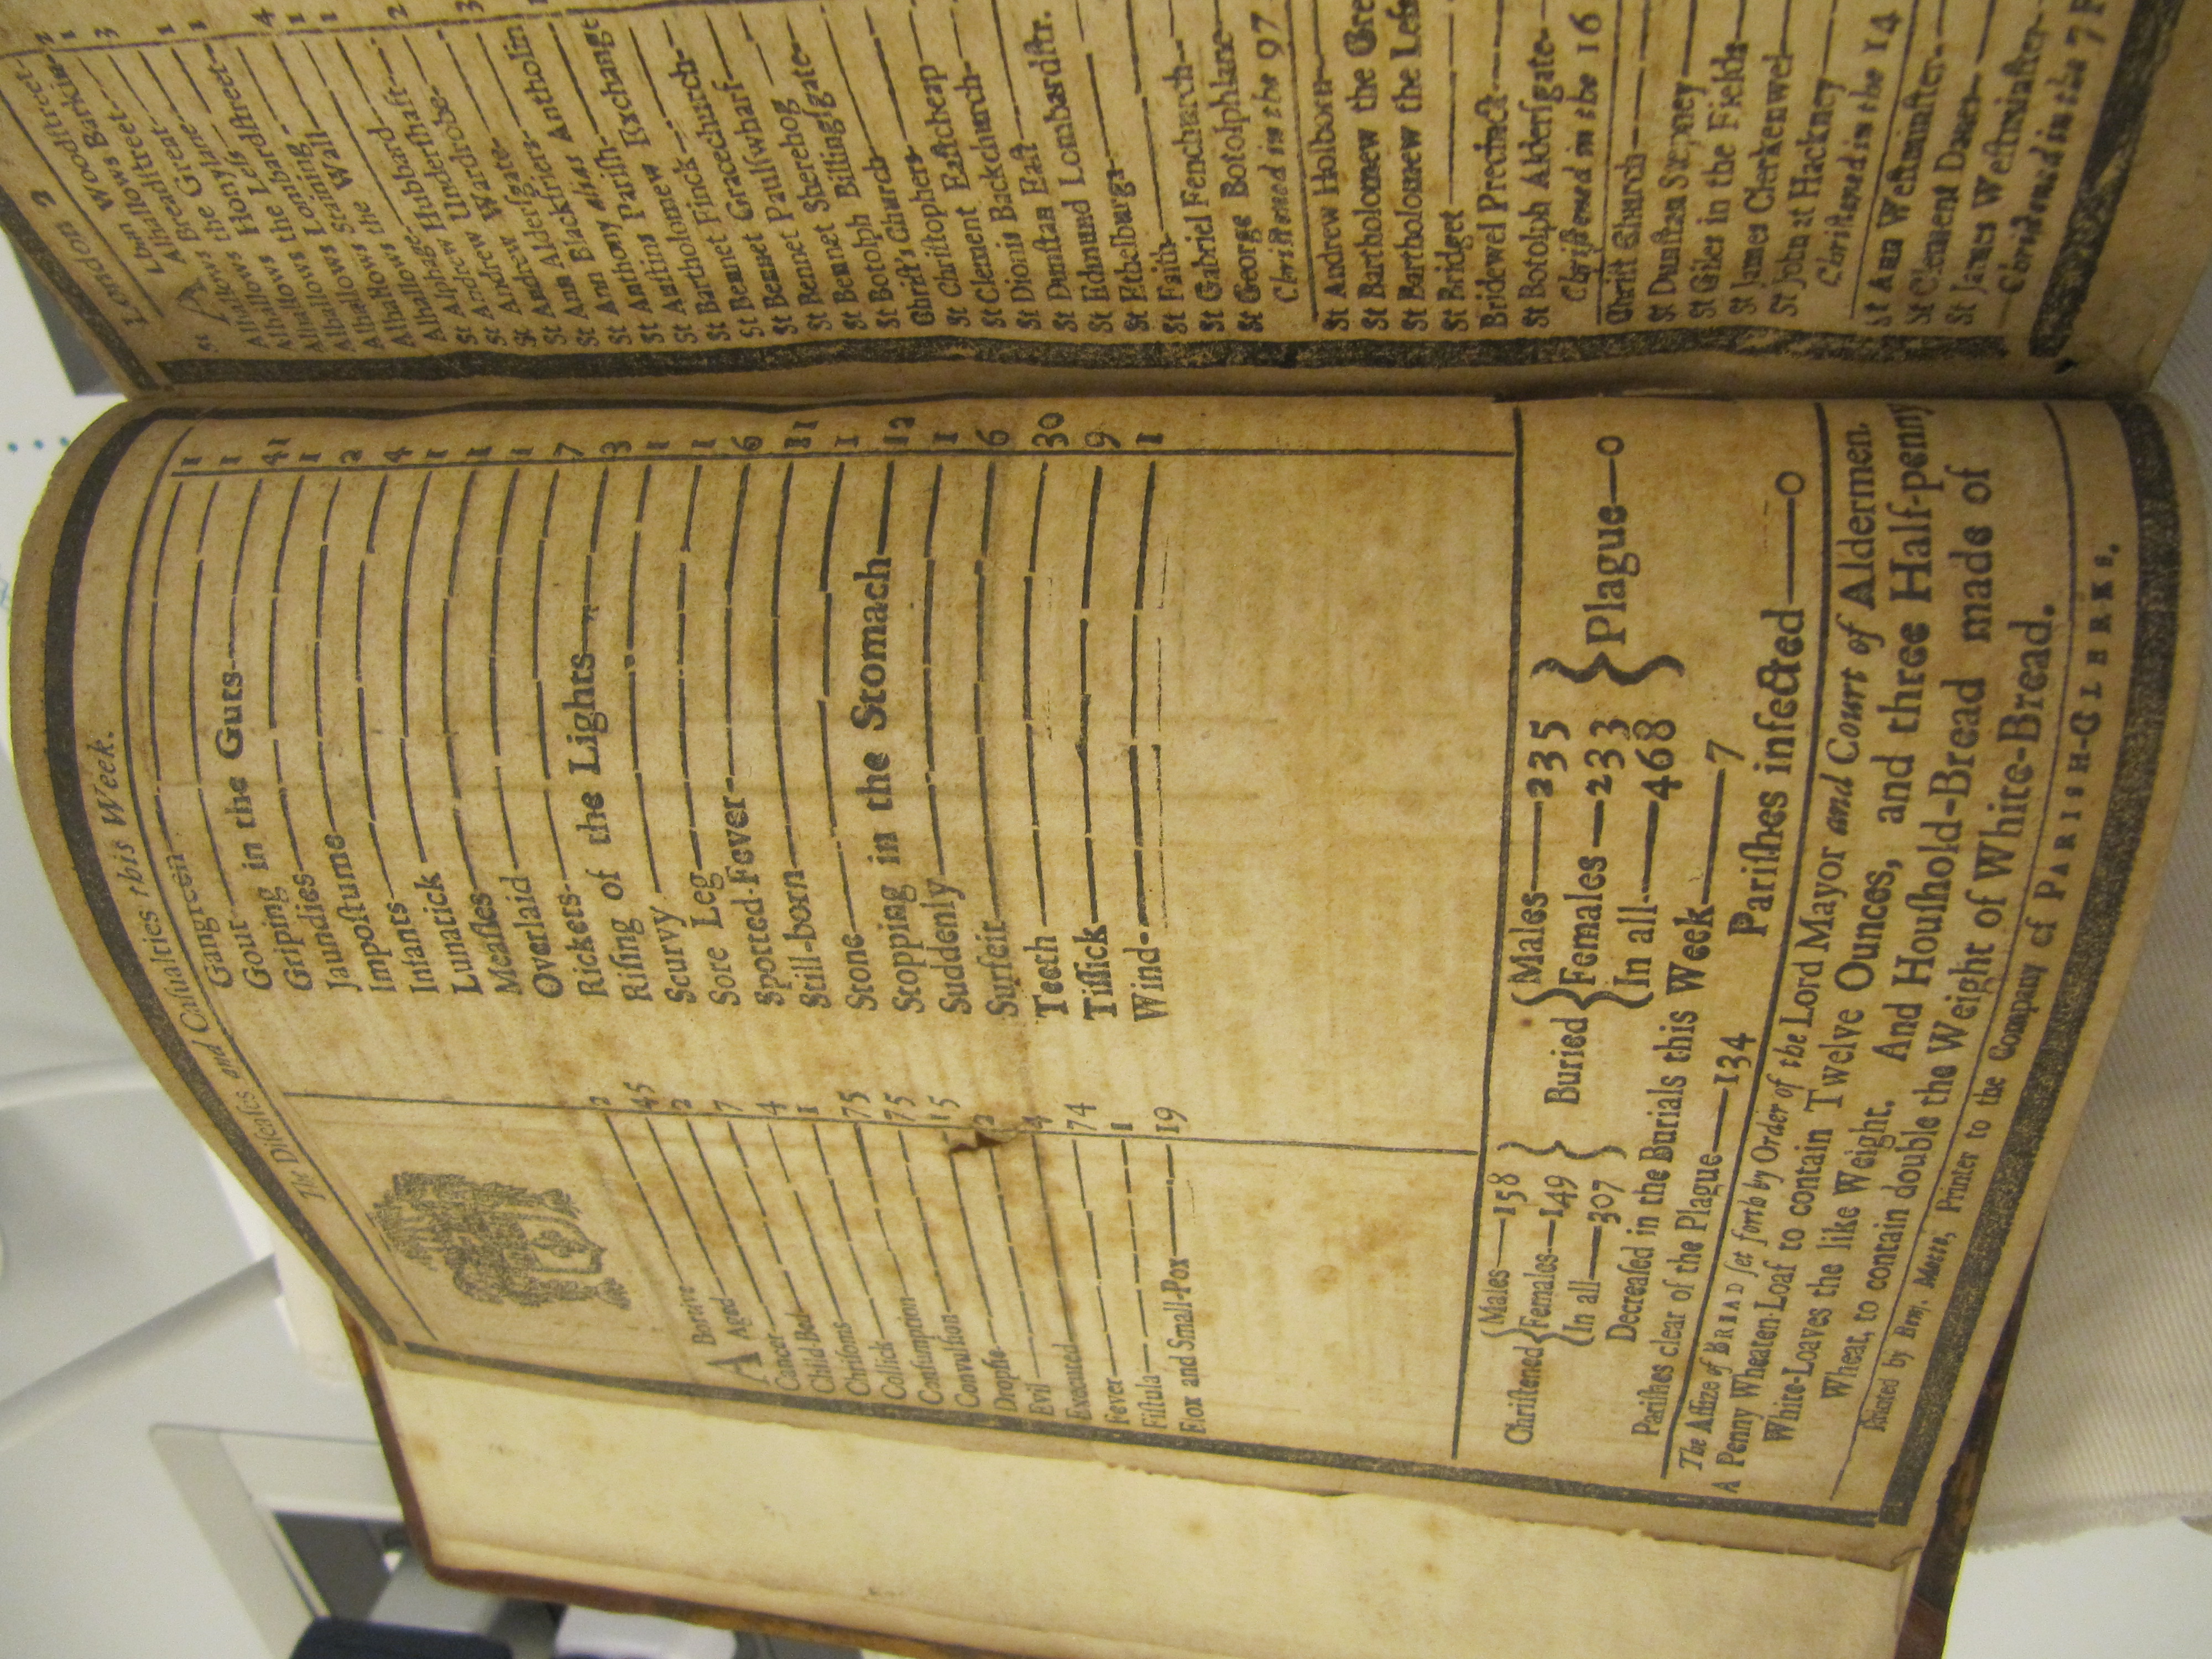 The Diſeaſes and Caſualties this Week.
ABortive 2
Aged 45
Cancer 2
Child-Bed 7
Chriſoms 4
Collick 1
Conſumption 75
Convulſion 75
Dropſie 15
Evil 2
Executed 4
Fever 74
Fiſtula 1
Flox and Small-Pox 19
Gangreen 1
Gout 1
Griping in the Guts 41
Jaundies 1
Impoſtume 2
Infants 4
Lunatick 1
Meaſles 1
Overlaid 1
Rickets 7
Riſing of the Lights 3
Scurvy 1
Sore Leg 1
Spotted-Fever 6
Still-born 11
Stone 1
Stopping in the Stomach 12
Suddenly 1
Surfeit 6
Teeth 30
Tiſſick 9
Wind 1
Chriſtened { Males—158 Females—149 In all—307 }
Buried { Males—235 Females—233 In all—468 } Plague—0
Decreaſed in the Burials this Week—7
Pariſhes clear of the Plague—134 Pariſhes infected—0
The Aſſize of BREAD ſet forth by Order of the Lord Mayor and Court of Aldermen.
A Penny Wheaten-Loaf to contain Twelve Ounces, and three Half-penny
White-Loaves the like Weight. And Houſhold-Bread made of
Wheat, to contain double the Weight of White-Bread.
Printed by Benj. Motte, Printer to the Company of PARISH-CLERKS.
London 2
St ALban Woodſtreet 2
Alhallows Barkin 1
Alhallows Breadſtreet 3
Alhallows the Great
Alhallows Honylane 1
Alhallows the Leſs 1
Alhallows Lombardſtreet 4
Alhallows Staining 1
Alhallows the Wall 1
St Alphage
St Andrew Hubbard 2
St Andrew Underſhaft
St Andrew Wardrobe 3
St Ann Alderſgate
St Ann Blackfriers
St Anthony alias Antholin
St Auſtins Pariſh
St Bartholomew Exchange
St Bennet Finck
St Bennet Gracechurch
St Bennet Paulſwharf
St Bennet Sherehog
St Botolph Billingſgate
Chriſt's Church
St Chriſtophers
St Clement Eaſtcheap
St Dionis Backchurch
St Dunſtan Eaſt
St Edmund Lombardſtr.
St Ethelburga
St Faith
St Gabriel Fenchurch
St George Botolphlane
Chriſtened in the 97
St Andrew Holborn
St Bartholomew the Gre
St Bartholomew the Leſs
St Bridget
Bridewel Precinct
St Botolph Alderſgate
Chriſtened in the 16
Chriſt Church
St Dunſtan Stepney
St Giles in the Fields
St James Clerkenwel
St John at Hackney
Chriſtened in the 14
St Ann Weſtminſter
St Clement Danes
St James Weſtminſter
Chriſtened in the 7